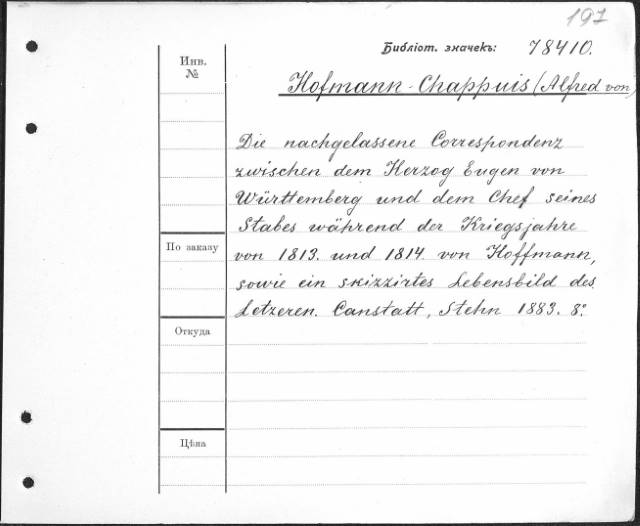 197
Библіот. значекъ: 78410.
Инв.
№
Hofmann-Chappuis (Alfred von)
Die nachgelassene Correspondenz
zwischen dem Herzog Eugen von
Württemberg und dem Chef seines
Stabes während der Kriegsjahre
По заказу
von 1813. und 1814. von Hoffmann,
sowie ein skizzirtes Lebensbild des
Letzeren. Canstatt, Stehn 1883. 8º.
Откуда
Цѣна